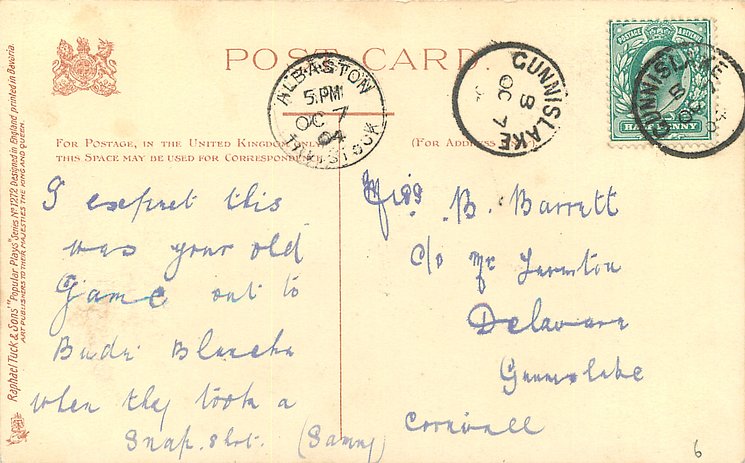 POST CARD
ALBASTON
5.PM
OC 7
04
TAVISTOCK
GUNNISLAKE
B
OC 7
GUNNISLAKE
POSTAGE
HALFPENNY
FOR POSTAGE, IN THE UNITED KINGDOM ONLY,
THIS SPACE MAY BE USED FOR CORRESPONDENCE
(FOR ADDRESS
I expect this
was your old
Game out to
Bude
when they took a
Snap. shot. (Sammy)
Miss B. Barrett
c/o Mr
Delaware
Gunnislake
Cornwall
6
Raphael Tuck & Sons' "Popular Plays" Series No 1272. Designed in England printed in Bavaria.
ART PUBLISHERS TO THEIR MAJESTIES THE KING AND QUEEN.